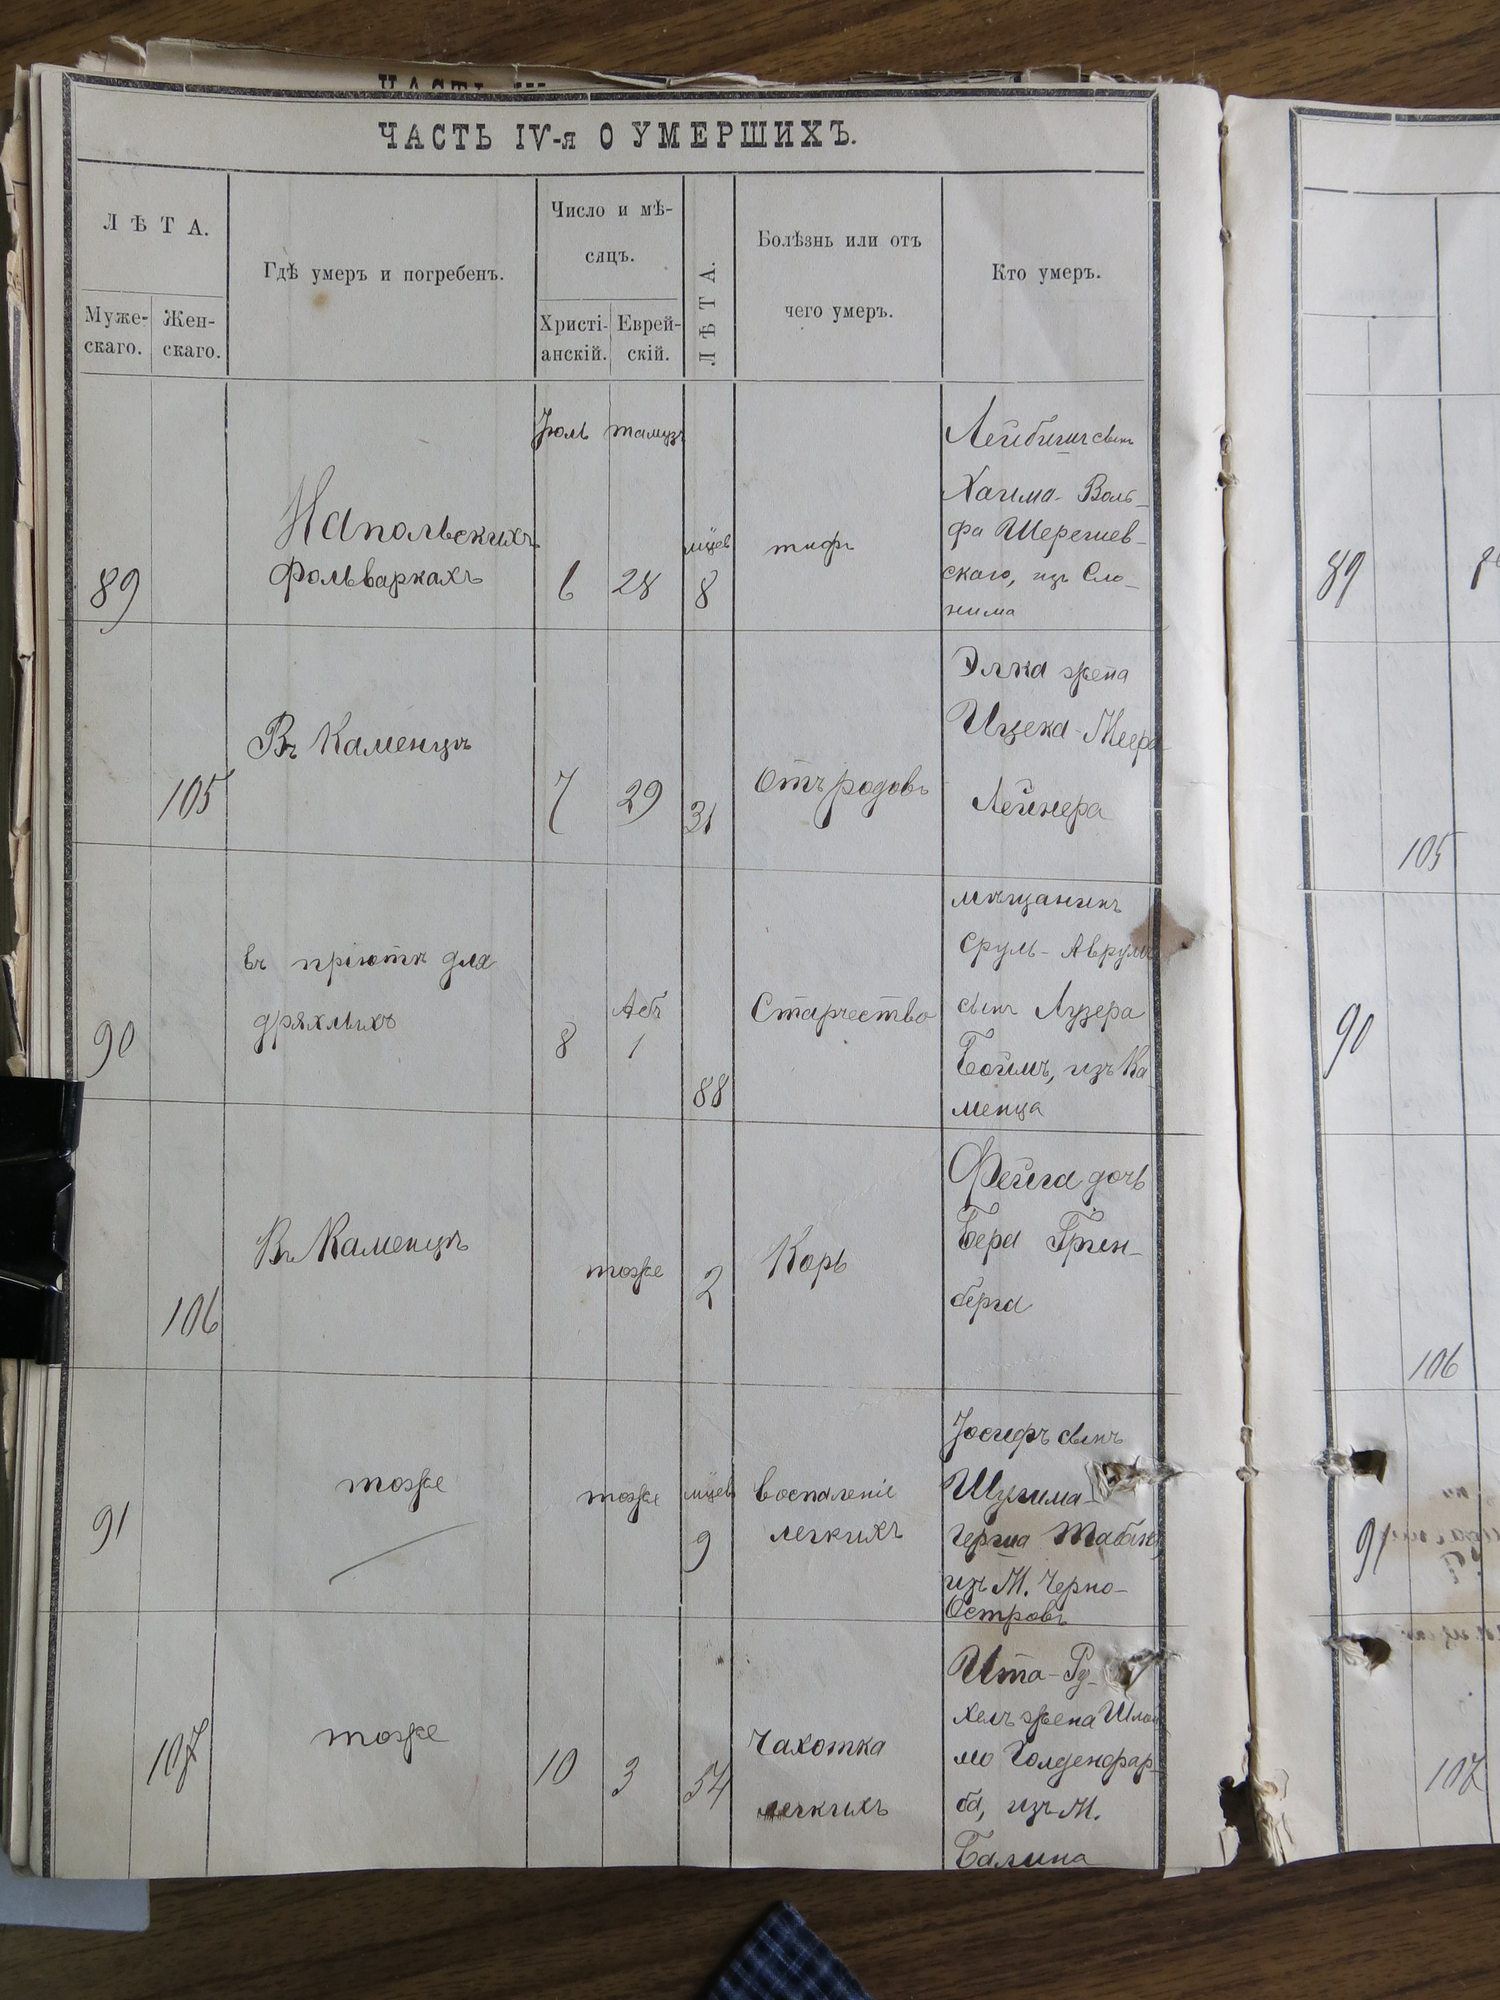 ЧАСТЬ IV-я О УМЕРШИХЪ.
ЛѢТА.
Муже-
скаго.
Жен-
скаго.
Гдѣ умеръ и погребенъ.
Число и мѣ-
сяцъ.
Христі-
анскій.
Еврей-
скій.
ЛѢТА.
Болѣзнь или отъ
чего умеръ.
Кто умеръ.
89
На польскихъ
фольваркахъ
Іюль
6
тамузъ
28
мцев
8
тифъ
Лейбишъ сынъ
Хаима-Воль-
фа Шерешев-
скаго, изъ Сло-
нима
105
Въ Каменцѣ
7
29
31
Отъ родовъ
Элка жена
Ицека-Меера
Лейнера
90
въ пріютѣ для
дряхлыхъ
8
Абъ
1
88
Старчество
мѣщанинъ
Сруль-Аврумъ
сынъ Лузера
Боймъ, изъ Ка
менца
106
Въ Каменцѣ
тоже
2
Корь
Фейга дочь
Бера Грин-
берга
91
тоже
тоже
мцев
9
воспаленіе
легкихъ
Іосифъ сынъ
Шулима-
Герша
изъ М. Черно-
Островъ
107
тоже
10
3
54
Чахотка
легкихъ
Ита-Ру-
хель жена Шлой
мо Голденфар-
ба, изъ М.
Балина
89
105
90
106
91
107